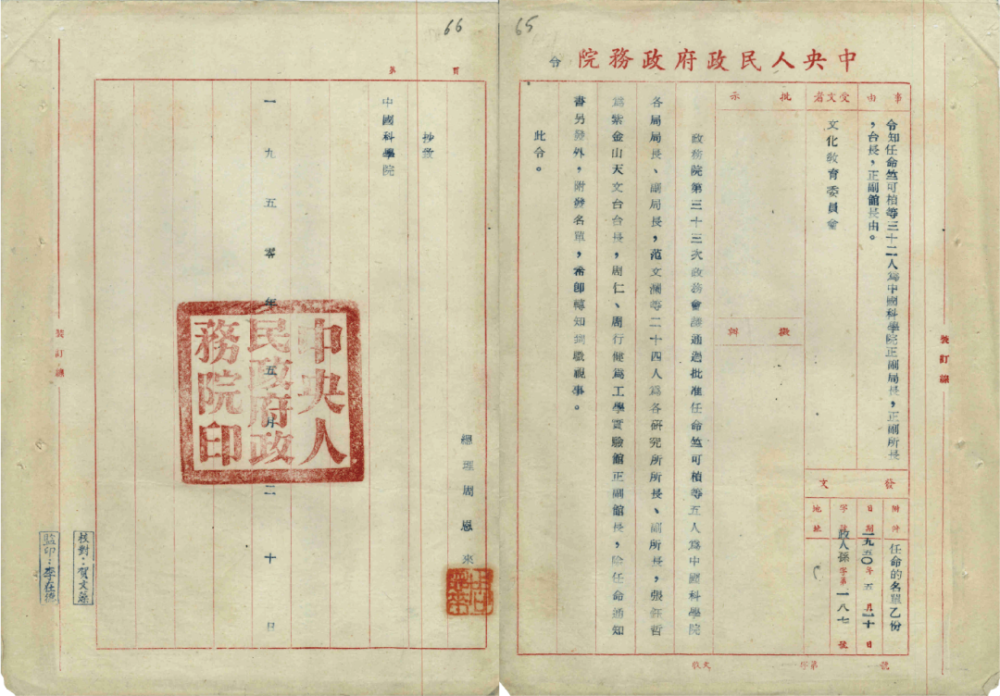 65
中央人民政府政務院 令
事由
令知任命竺可楨等三十二人為中國科學院正副局長,正副所長
,台長,正副館長由。
受文者
文化教育委員會
批示
擬辦
發文
附件
任命的名單乙份
日期
一九五〇年五月二十日
字號
政人孫字第一八七號
地址
政務院第三十三次政務會議通過批准任命竺可楨等五人為中國科學院
各局局長、副局長,范文瀾等二十四人為各研究所所長、副所長,張鈺哲
為紫金山天文台台長,周仁、周行健為工學實驗館正副館長,除任命通知
書另發外,附發名單,希即轉知到職視事。
此令。
裝訂線
號
第
字
66
頁
第
抄致
中國科學院
總理周恩來
一九五零年五月二十日
中央人民政府政務院印
裝訂線
核對:賀文
監印:李在